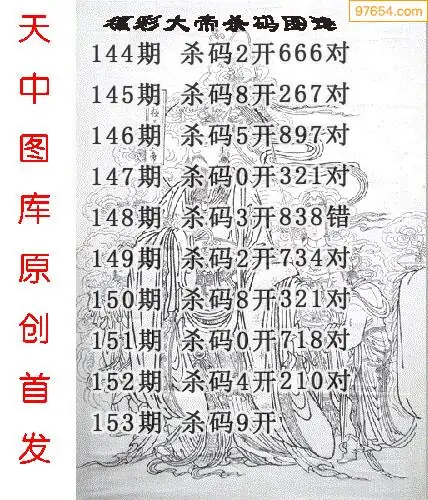 97654.com
福彩大帝杀码图迷
144期 杀码2开666对
145期 杀码8开267对
146期 杀码5开897对
147期 杀码0开321对
148期 杀码3开838错
149期 杀码2开734对
150期 杀码8开321对
151期 杀码0开718对
152期 杀码4开210对
153期 杀码9开
天中图库原创首发